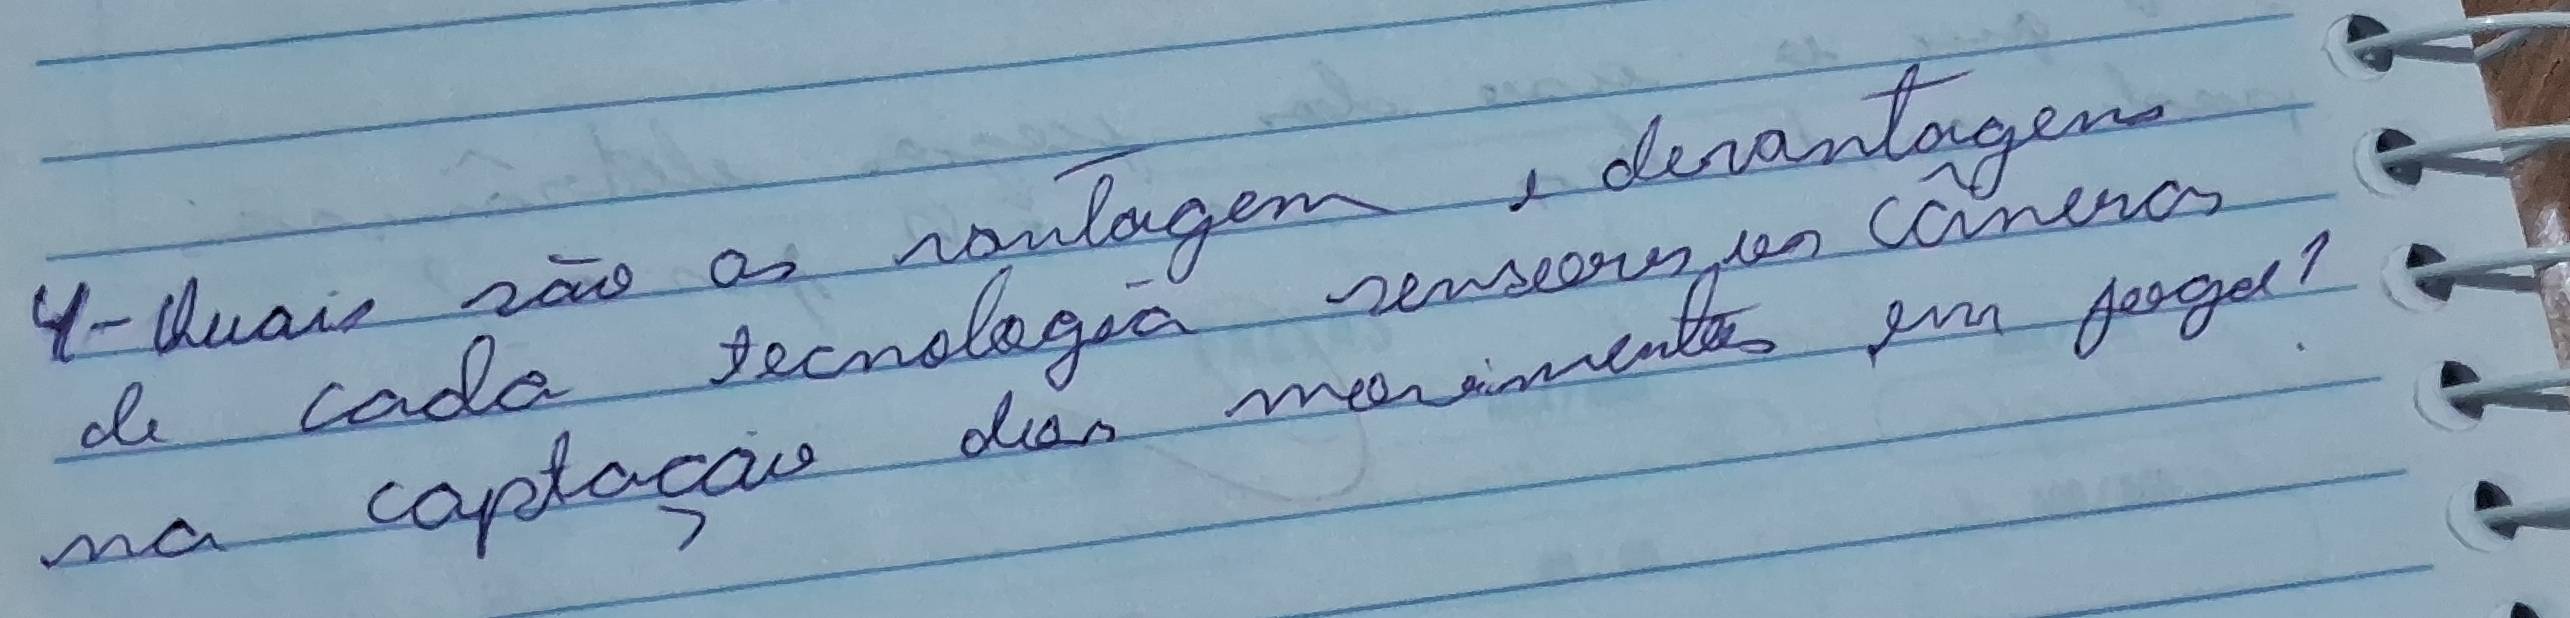 4-Quais são as vantagem e desvantagens
de cada tecnologia senseores, câmeras
na captação dos movimentos em joga?